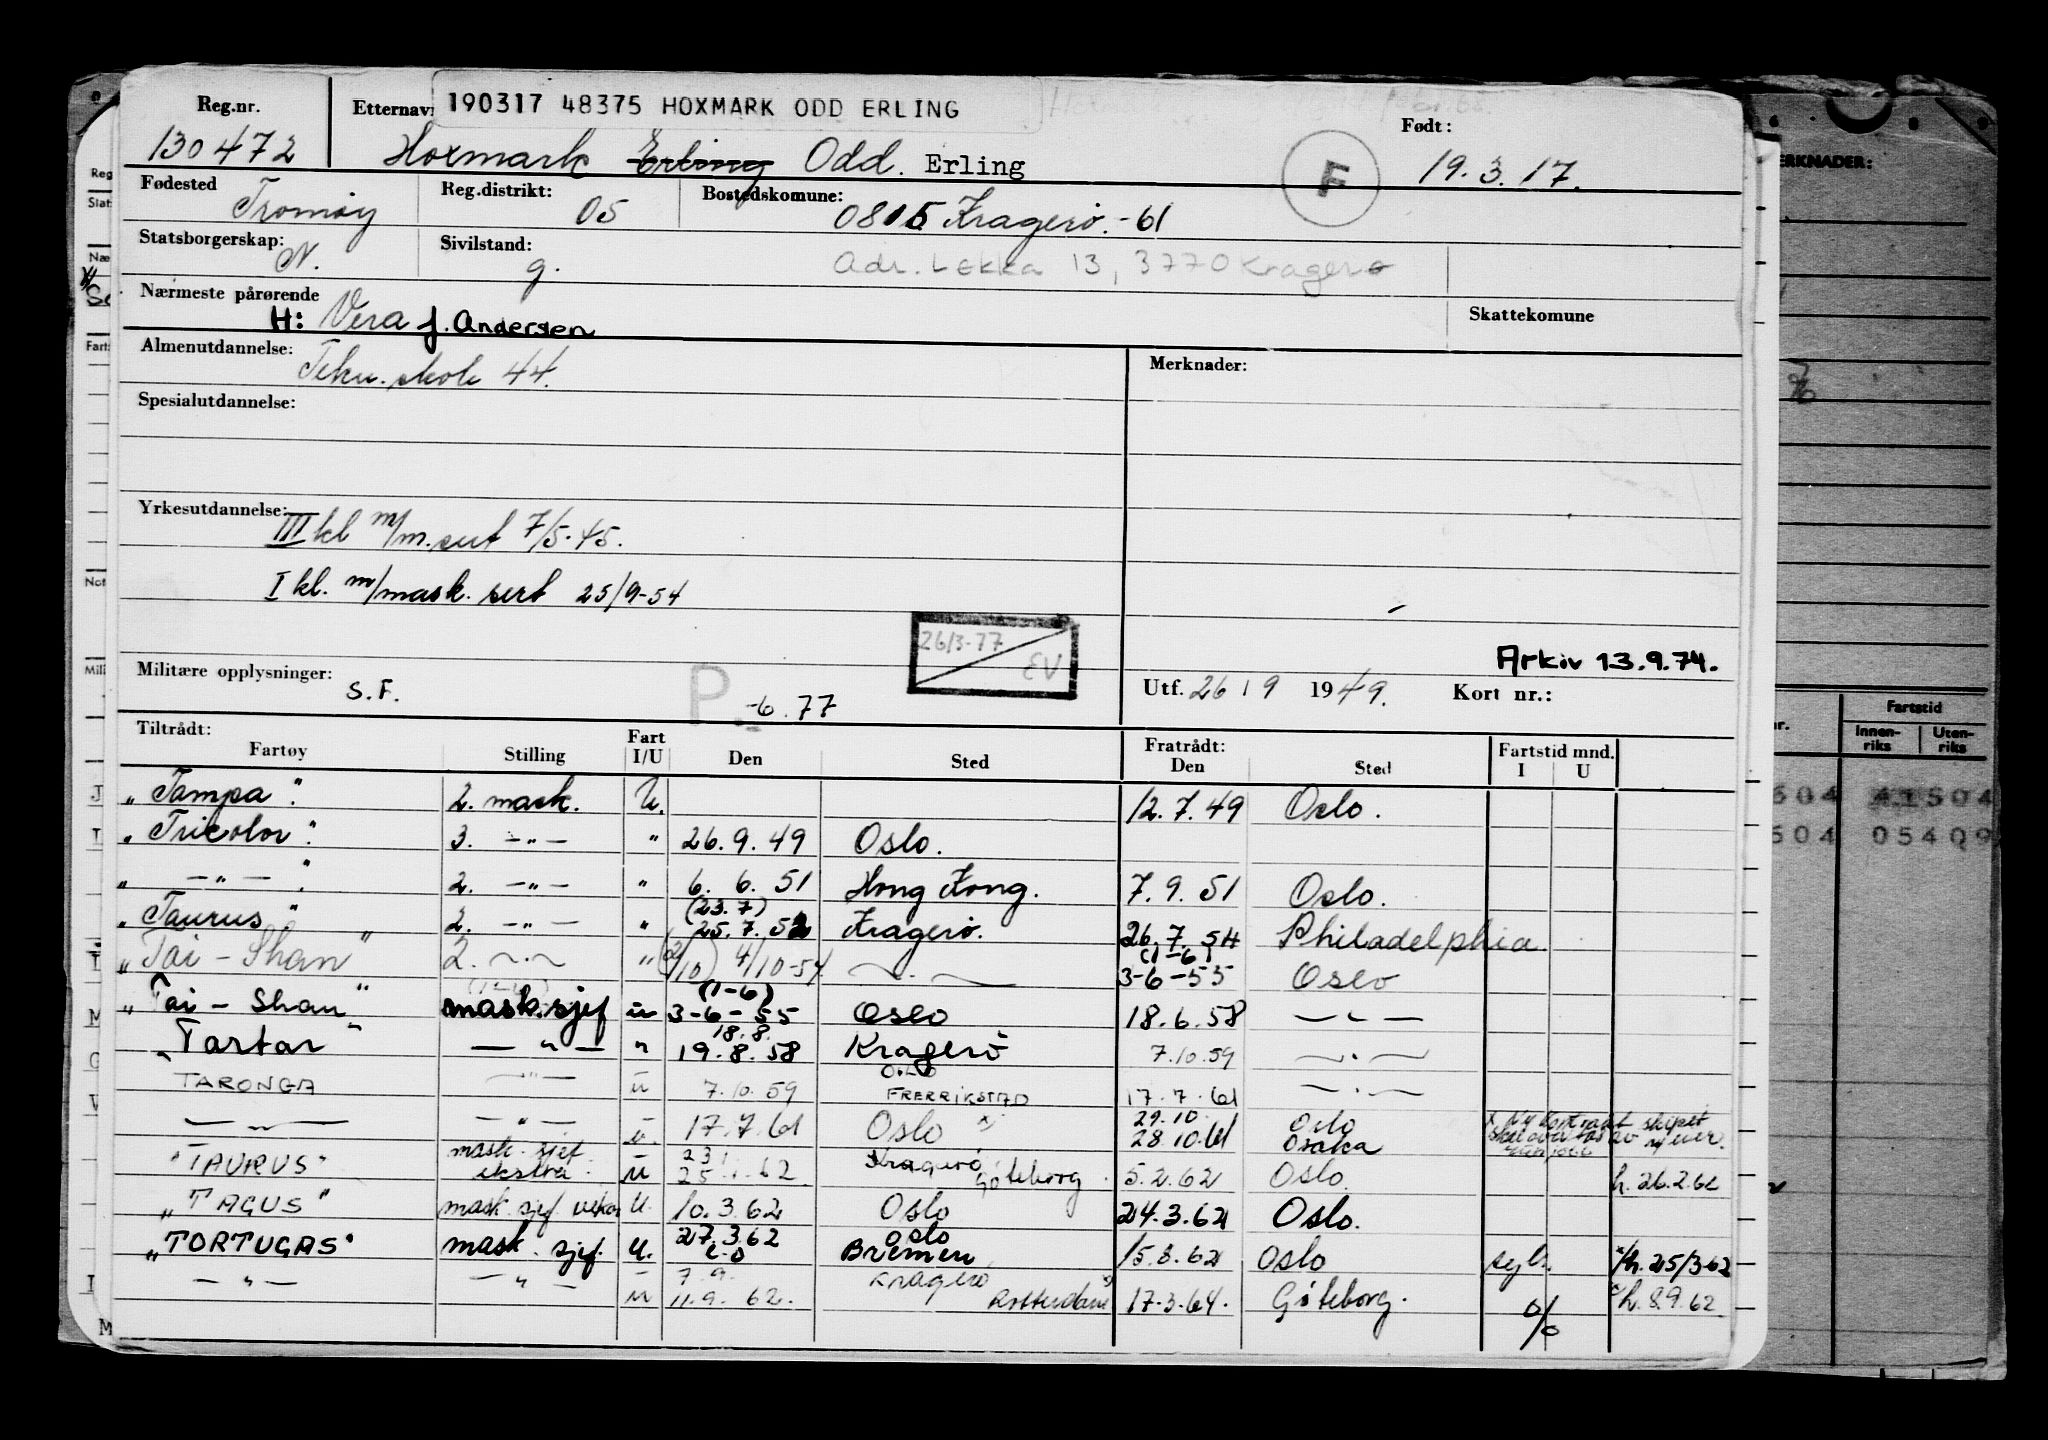 Reg.nr. Etternavn 190317 48375 HOXMARK ODD ERLING Født:
130472 Hoxmark Erling Odd. Erling F 19.3.17.
Fødested Tromøy Reg.distrikt: 05 Bostedskomune: 0815 Kragerø.-61
Statsborgerskap: N. Sivilstand: g. Adr. Løkka 13, 3770 Kragerø
Nærmeste pårørende H: Vera J. Andersen Skattekomune
Almenutdannelse: Tekn. skole 44. Merknader:
Spesialutdannelse:
Yrkesutdannelse: III kl m/m. sert 7/5-45.
I kl. m/mask. sert 25/9-54
26/3-77 EV
Arkiv 13.9.74.
Militære opplysninger: S.F. P. -6.77 Utf. 26 / 9 1949. Kort nr.:
Tiltrådt: Fart Fratrådt: Fartstid mnd.
Fartøy Stilling I/U Den Sted Den Sted I U
„Tampa" 2. mask. U. 12.7.49 Oslo.
„Tricolor" 3. -"- " 26.9.49 Oslo.
„ -"- " 2. -"- " 6. 6. 51 Hong Kong. 7.9.51 Oslo.
„Taurus" 2. -"- " (23.7) 25.7.52 Kragerø. 26.7.54 Philadelphia
„Tai-Shan" 2. -"- " (2/10) 4/10-54 -"- (1-6) 3-6-55 Oslo
„Tai-Shan" mask.sjef u (1-6) 3-6-55 Oslo 18.6.58 -"-
„Tartar" -"- " 18.8. 19.8.58 Kragerø 7.10.59 -"-
TARONGA -"- u 7.10.59 OSLO FREDRIKSTAD 17.7.61 -"-
-"- -"- u. 17.7.61 Oslo x) 29.10. 28.10.61 Oslo Osaka x Ny kontrakt skipet
"TAURUS" mask. sjef ekstra. u 23.1 25.1.62 Kragerø Göteborg. 5.2.62 Oslo. h. 26.2.62
„TAGUS" mask. sjef vikar U. 10.3.62 Oslo 24.3.62 Oslo.
„TORTUGAS" mask. sjef. U. 27.3.62 Oslo Bremen 15.8.62 Oslo x/h. 25/3-62
-"- -"- u 7.9. 11.9.62. Kragerø Rotterdam x) 17.3.64. Göteborg. x h. 8.9.62
MERKNADER:
Fartstid
Innen-riks Uten-riks
504 41504
504 05409